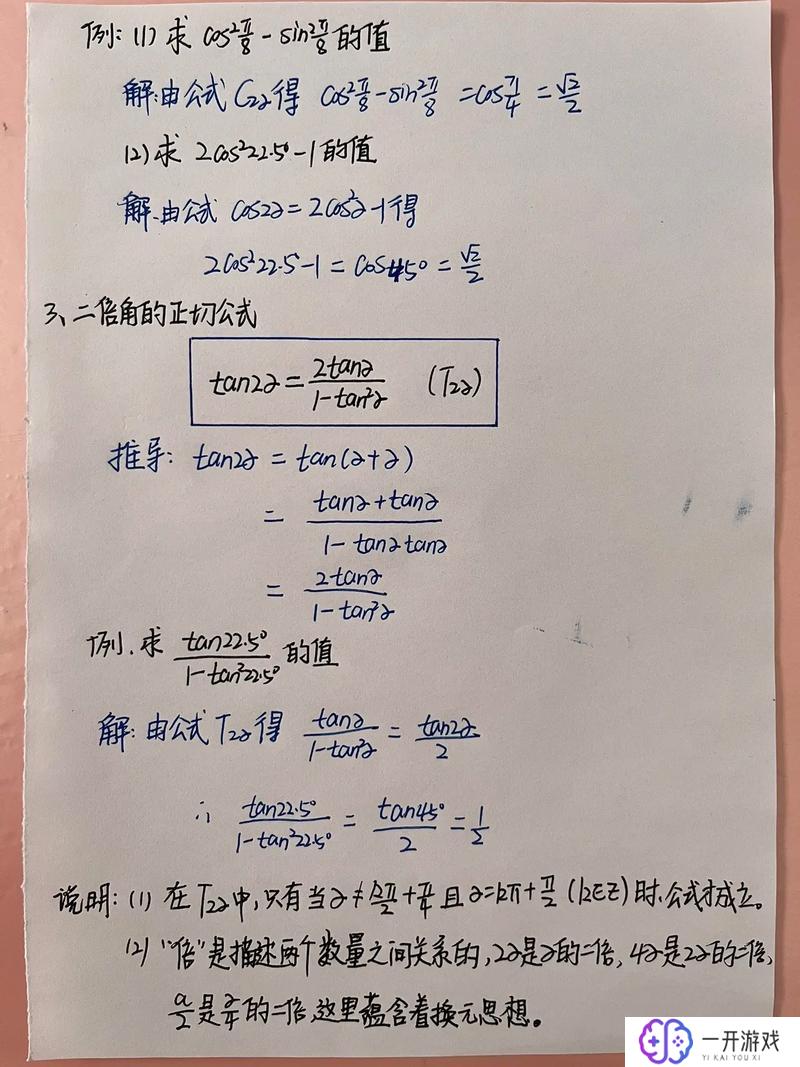 例:(1)求 cos²π/8 - sin²π/8 的值
解:由公式 C₂α得 cos²π/8 - sin²π/8 = cosπ/4 = √2/2
(2)求 2cos²22.5° - 1 的值
解.由公式 cos2α = 2cos²α - 1 得
2cos²22.5 - 1 = cos45° = √2/2
3、二倍角的正切公式
tan2α = 2tanα/(1-tan²α) (T₂α)
推导: tan2α = tan(α+α)
= (tanα+tanα)/(1-tanαtanα)
= 2tanα/(1-tan²α)
例.求 tan22.5°/(1-tan²22.5°) 的值
解:由公式T₂α得 tanα/(1-tan²α) = tan2α/2
∴ tan22.5°/(1-tan²22.5°) = tan45°/2 = 1/2
说明:(1)在T₂α中,只有当α≠kπ/2+π/4且α=kπ+π/2(k∈Z)时,公式才成立。
(2)“倍”是描述两个数量之间关系的,2α是α的二倍,4α是2α的二倍,
α/2是α/4的二倍,这里蕴含着换元思想。
一开游戏
YI KAI YOU XI